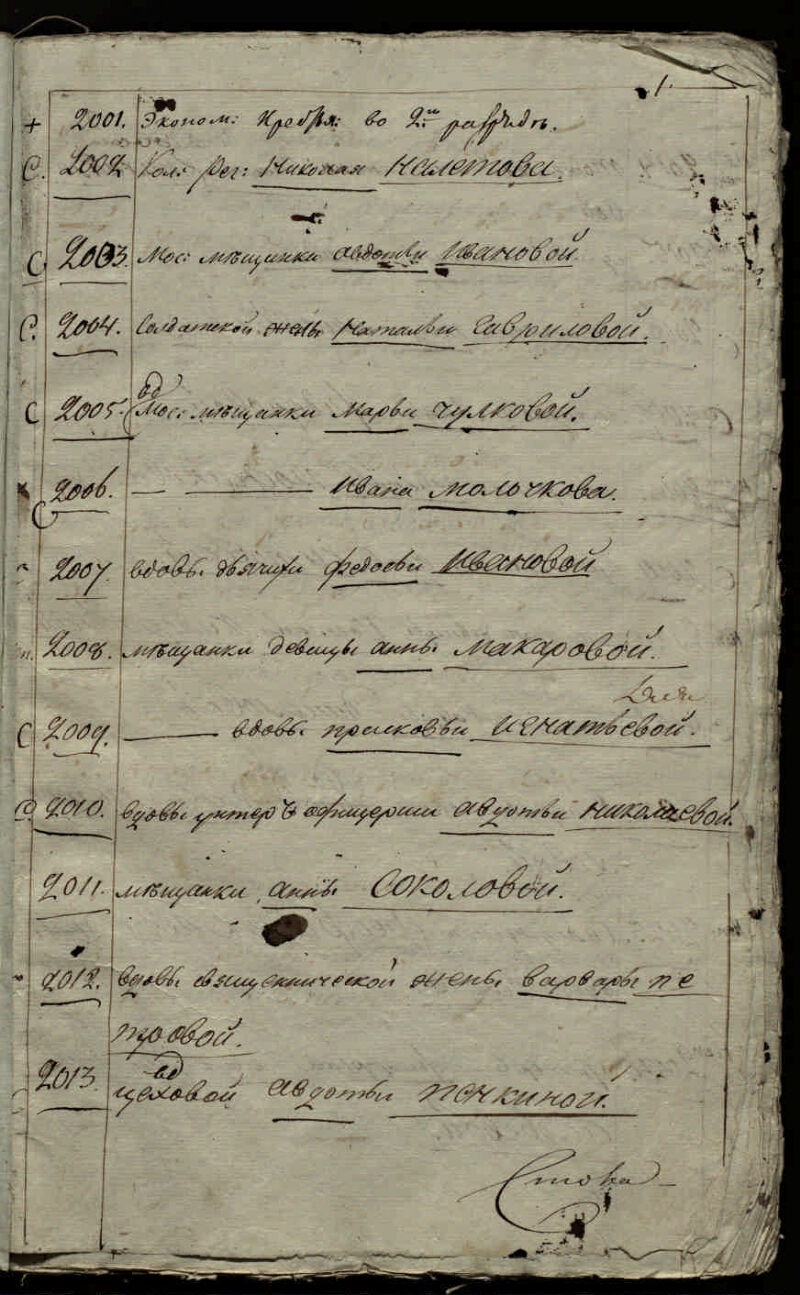 1.
+ 2001. Эконом: Крестья: во 2м разрядѣ.
С. 2002. Кол: рег: Николая Налетова.
С 2003. Мос: мѣщанки авдотьи Ивановой.
С. 2004. Солдатской жены Натальи Гавриловой.
С 2005. Мос: мѣщанки Марьи Чулковой.
2006. — — Ивана Молочкова.
2007 вдовы дьячихи федосьи Ивановой
2008. мѣщанки девицы анны Макаровой.
С 2009. — вдовы прасковьи Игнатьевой.
2010. вдовы унтер офицерши авдотьи Николаевой.
2011. мѣщанки анны Соколовой.
2012. вдовы священнической жены варвары пе
тровой.
2013 цеховой авдотьи Пенкиной.